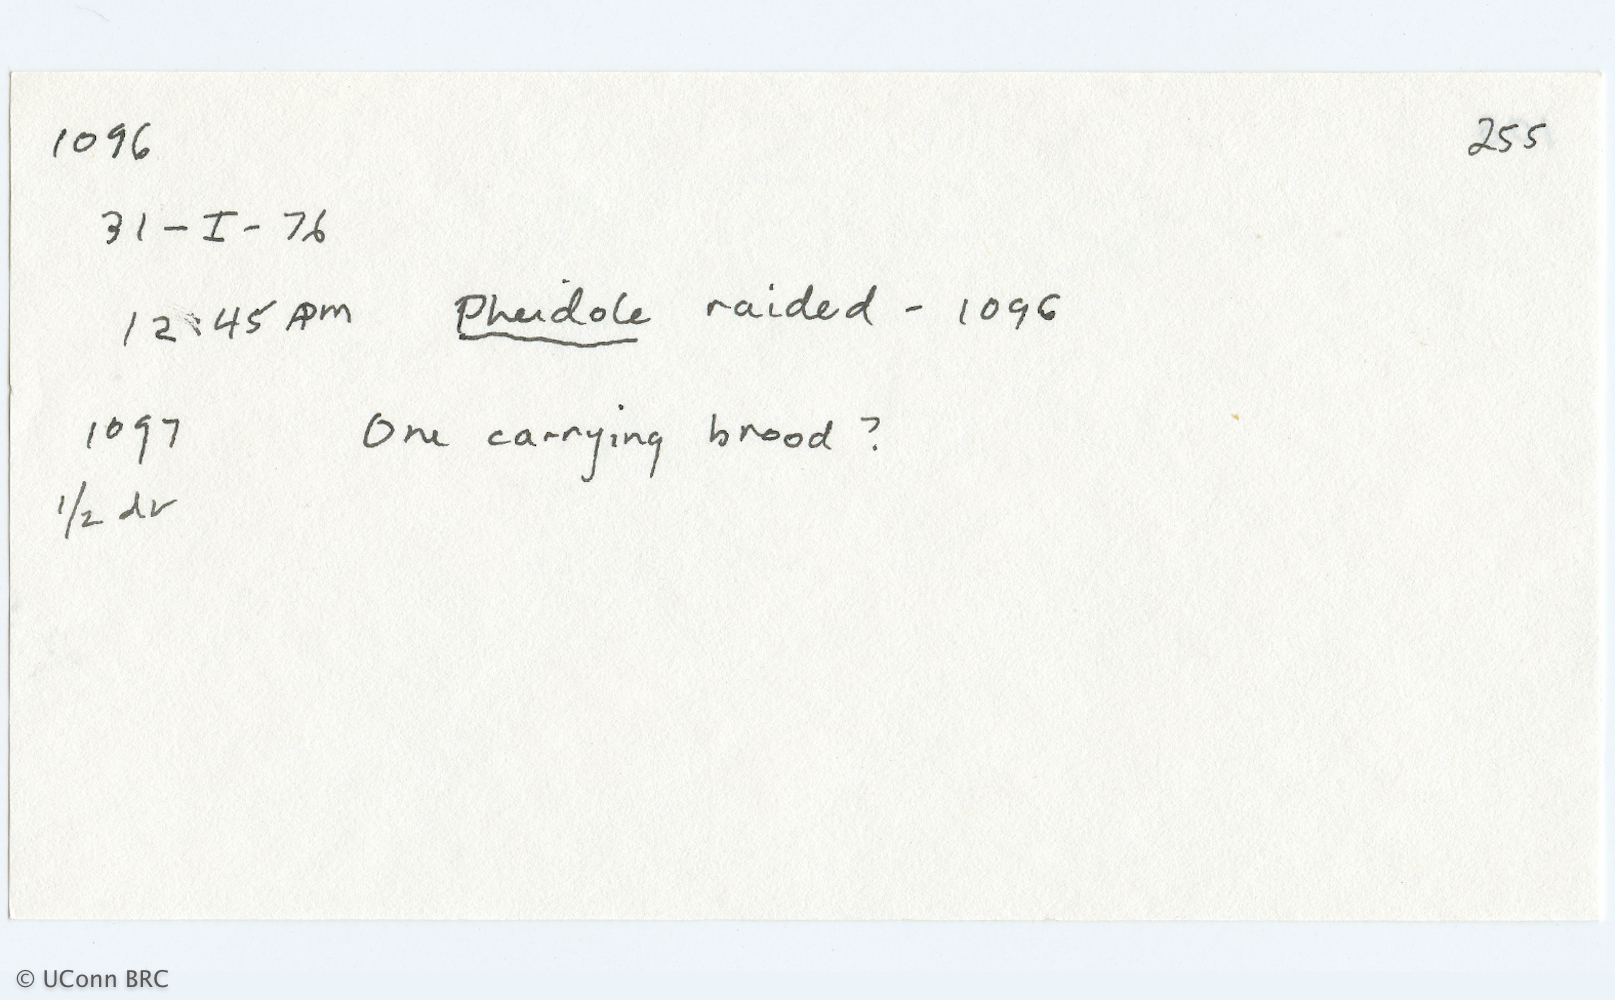 1096 255
31-I-76
12:45 Pm Pheidole raided - 1096
1097 One carrying brood?
1/2 dr
© UConn BRC